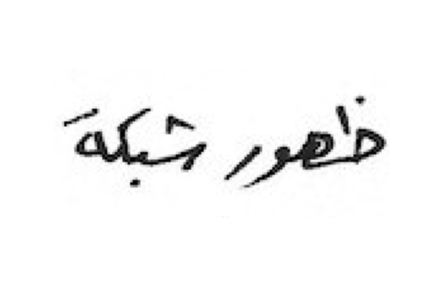 ظهور شبكة